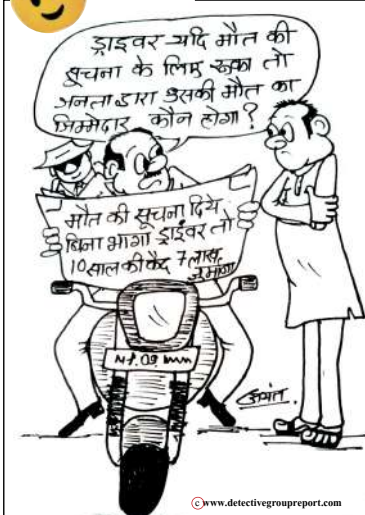 ड्राइवर यदि मौत की
सूचना के लिए रूका तो
जनता द्वारा उसकी मौत का
जिम्मेदार कौन होगा?
मौत की सूचना दिये
बिना भागा ड्राईवर तो
10 साल की कैद 7 लाख
जुर्माना
M.P. 09
जयंत
c www.detectivegroupreport.com